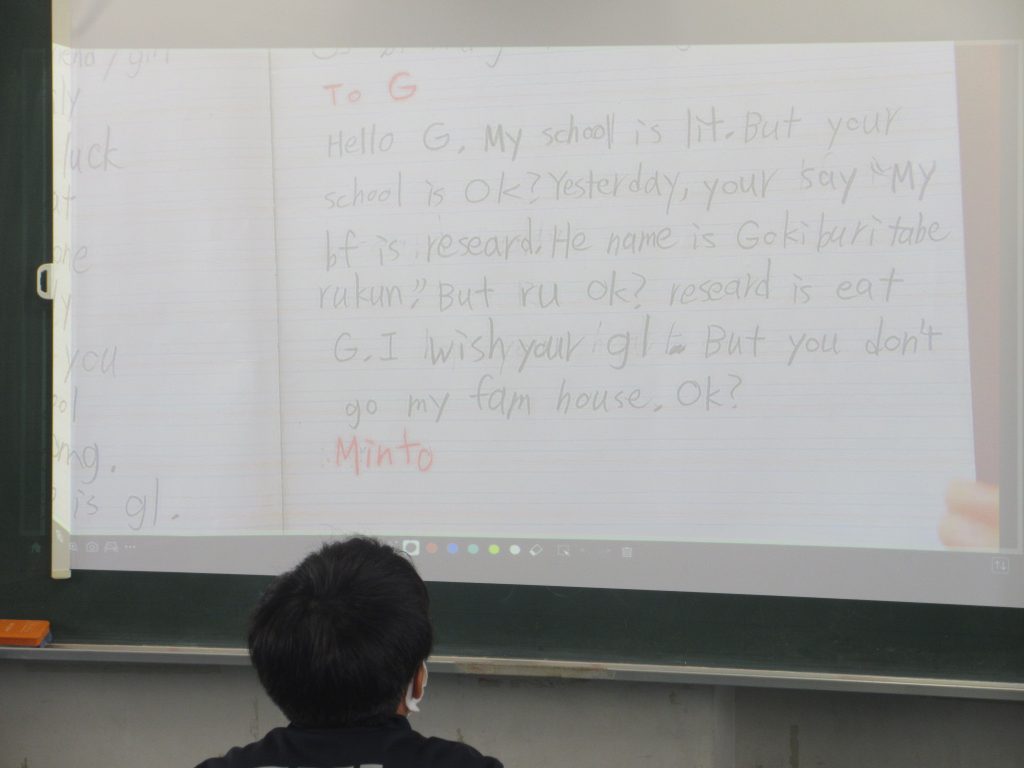 luck
you
is gl.
To G
Hello G. My school is lit. But your
school is Ok? Yesterday, your say "My
bf is researd. He name is Gokiburi tabe
rukun." But ru Ok? researd is eat
G. I wish your gl. But you don't
go my fam house. Ok?
Minto